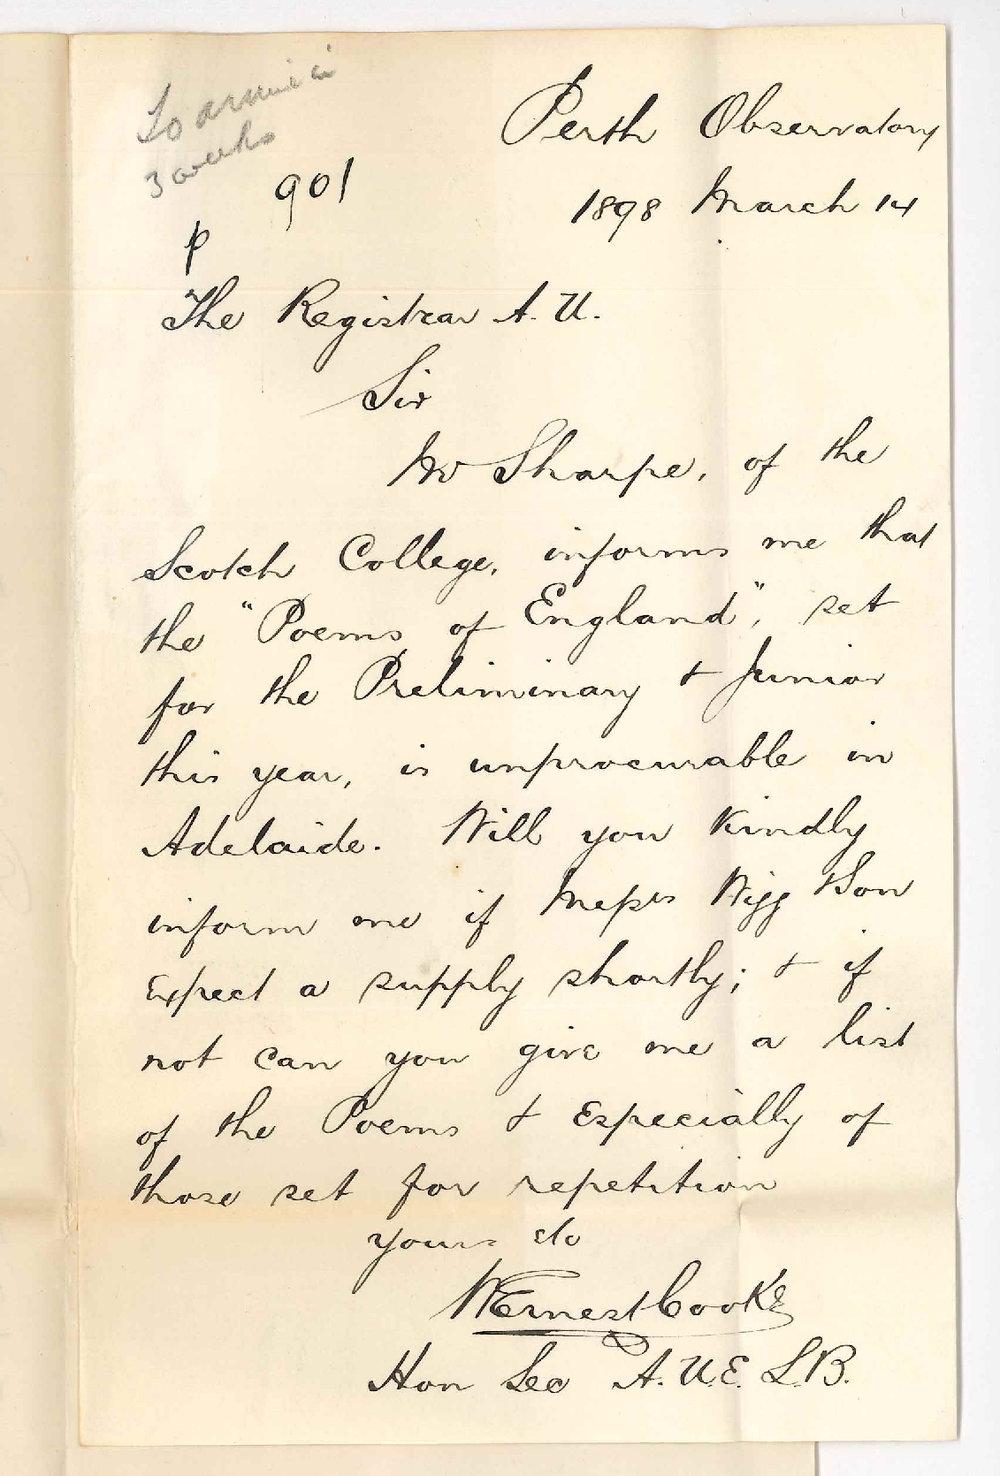 To arrive in
3 weeks
901
p
Perth Observatory
1898 March 14
The Registrar A. U.
Sir
Mr Sharpe, of the
Scotch College, informs me that
the "Poems of England", set
for the Preliminary & Junior
this year, is unprocurable in
Adelaide. Will you kindly
inform me if Messrs Wigg & Son
expect a supply shortly; & if
not can you give me a list
of the Poems & especially of
those set for repetition
yours etc
W Ernest Cooke
Hon Sec A. U. E. L. B.